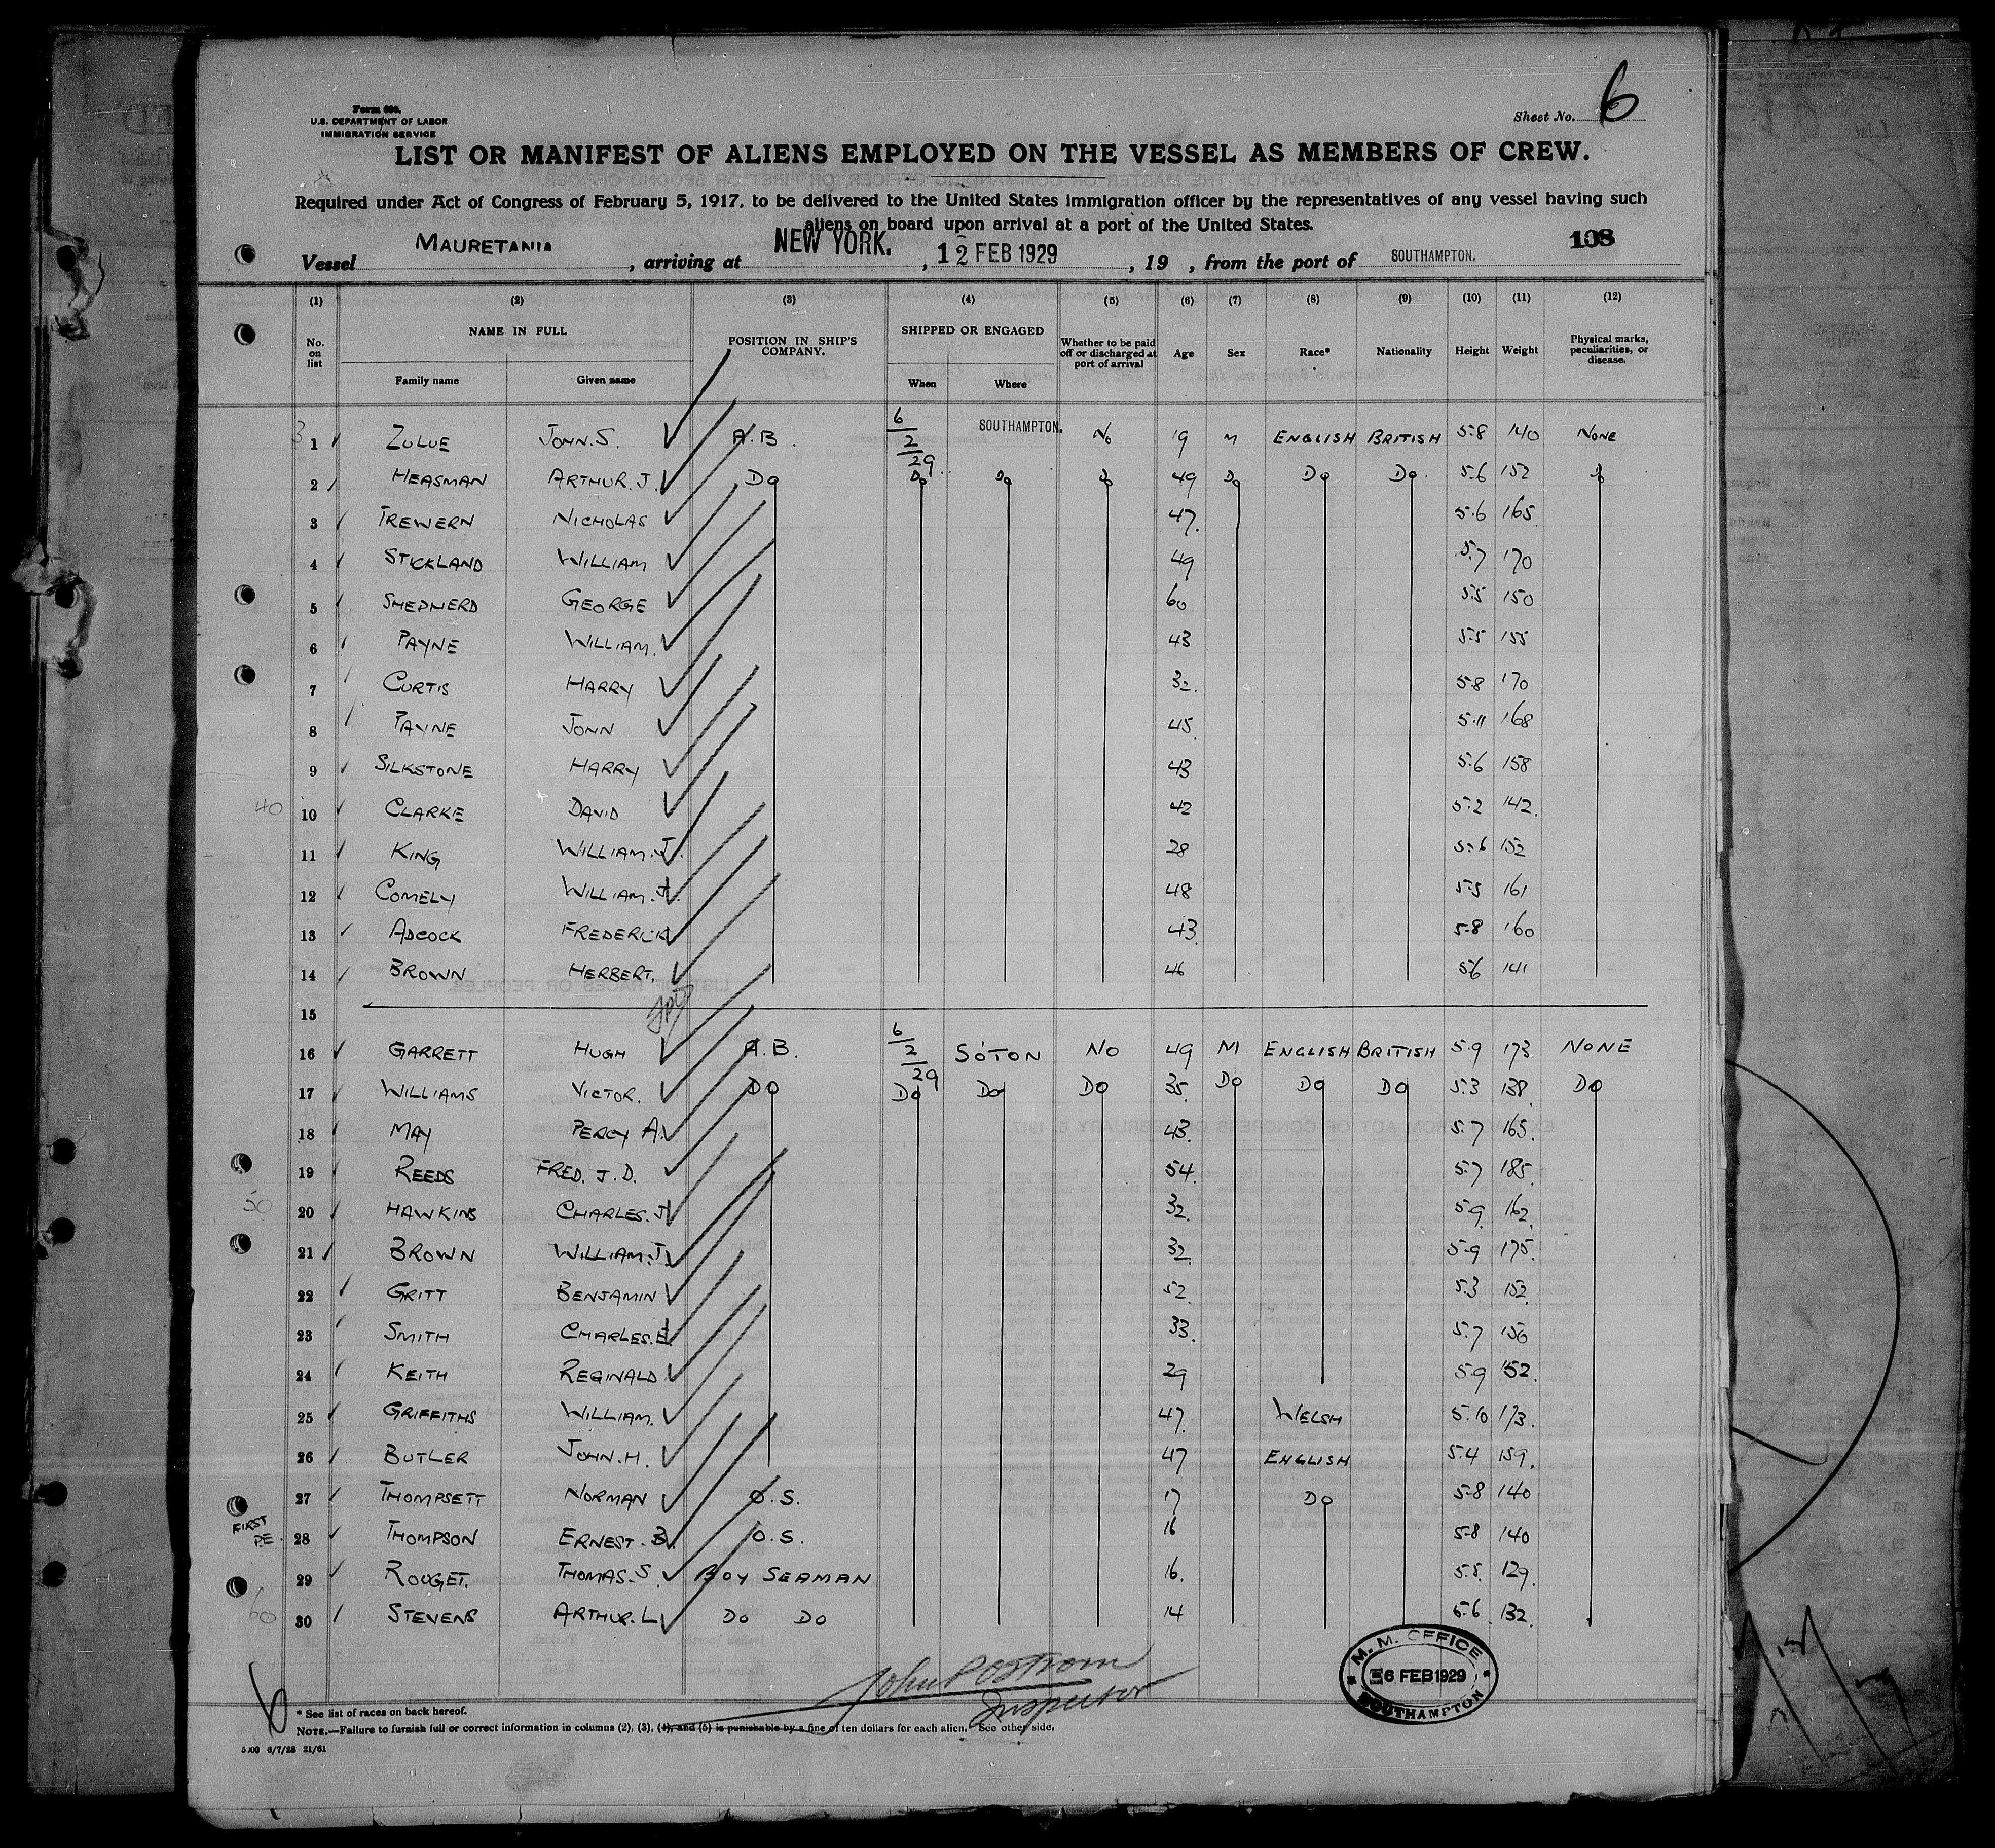 Form 689.
U.S. DEPARTMENT OF LABOR
IMMIGRATION SERVICE
Sheet No. 6
LIST OR MANIFEST OF ALIENS EMPLOYED ON THE VESSEL AS MEMBERS OF CREW.
Required under Act of Congress of February 5, 1917, to be delivered to the United States immigration officer by the representatives of any vessel having such
aliens on board upon arrival at a port of the United States.
108
Vessel MAURETANIA, arriving at NEW YORK., 12 FEB 1929, 19 , from the port of SOUTHAMPTON.
(1) (2) (3) (4) (5) (6) (7) (8) (9) (10) (11) (12)
No. on list NAME IN FULL Family name Given name POSITION IN SHIP'S COMPANY. SHIPPED OR ENGAGED When Where Whether to be paid off or discharged at port of arrival Age Sex Race* Nationality Height Weight Physical marks, peculiarities, or disease.
1 ZULUE JOHN.S. A.B. 6/2/29 SOUTHAMPTON. No 19 M ENGLISH BRITISH 5-8 140 NONE
2 HEASMAN ARTHUR.J. Do Do Do Do 49 Do Do Do 5-6 152 Do
3 TREWERN NICHOLAS 47. 5-6 165.
4 STICKLAND WILLIAM 49 5-7 170
5 SHEPHERD GEORGE 60 5-5 150
6 PAYNE WILLIAM. 43 5-5 155
7 CURTIS HARRY 32. 5-8 170
8 PAYNE JOHN 45. 5-11 168
9 SILKSTONE HARRY 43 5-6 158
40 10 CLARKE DAVID 42 5-2 142.
11 KING WILLIAM.J. 28 5-6 152
12 COMELY WILLIAM.J. 48 5-5 161
13 ADCOCK FREDERICK 43. 5-8 160
14 BROWN HERBERT. 46 5-6 141
15
16 GARRETT HUGH A.B. 6/2/29 S'OTON NO 49 M ENGLISH BRITISH 5-9 173 NONE
17 WILLIAMS VICTOR. DO DO DO DO 35. DO DO DO 5-3 138. DO
18 MAY PERCY A. 43. 5-7 165.
19 REEDS FRED. J. D. 54. 5-7 185.
50 20 HAWKINS CHARLES.J 32. 5-9 162.
21 BROWN WILLIAM.J. 32. 5-9 175.
22 GRITT BENJAMIN 52. 5-3 152.
23 SMITH CHARLES.E 33. 5-7 156
24 KEITH REGINALD 29 5-9 152.
25 GRIFFITHS WILLIAM. 47. WELSH 5-10 173.
26 BUTLER JOHN.H. 47 ENGLISH 5-4 159.
27 THOMPSETT NORMAN O.S. 17 DO 5-8 140
FIRST
P.E. 28 THOMPSON ERNEST.B. O.S. 16 5-8 140
29 ROUGET. THOMAS.S. BOY SEAMAN 16. 5-5. 129.
60 30 STEVENS ARTHUR.L DO DO 14 5-6 132.
M. M. OFFICE
6 FEB 1929
SOUTHAMPTON
Inspector
6
* See list of races on back hereof.
NOTE.—Failure to furnish full or correct information in columns (2), (3), (4), and (5) is punishable by a fine of ten dollars for each alien. See other side.
5000 6/7/28 21/61